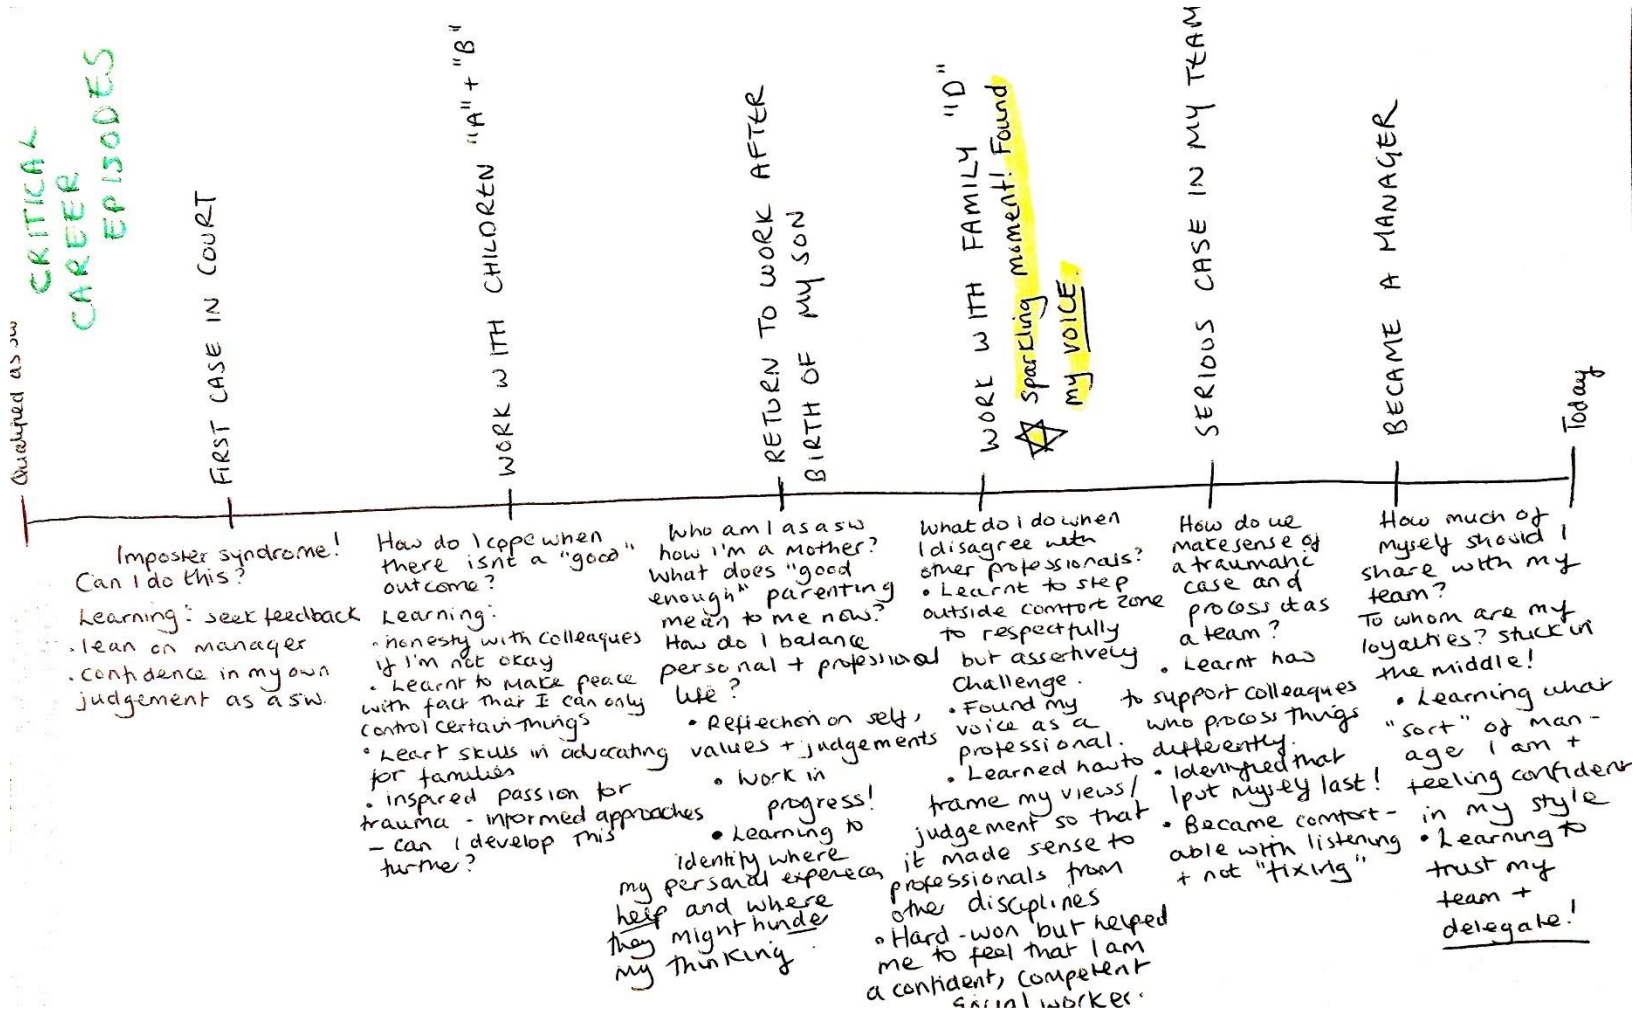 CRITICAL
CAREER
EPISODES
Qualified as sw
FIRST CASE IN COURT
WORK WITH CHILDREN "A" + "B"
RETURN TO WORK AFTER
BIRTH OF MY SON
WORK WITH FAMILY "D"
Sparkling moment! Found
my VOICE.
SERIOUS CASE IN MY TEAM
BECAME A MANAGER
Today
Imposter syndrome!
Can I do this?
Learning: seek feedback
· lean on manager
· confidence in my own
judgement as a sw.
How do I cope when
there isnt a "good"
outcome?
Learning:
· honesty with colleagues
if I'm not okay
· Learnt to make peace
with fact that I can only
control certain things
· Leart skills in advocating
for families
· inspired passion for
trauma - informed approaches
- can I develop this
further?
Who am I as a sw
how I'm a Mother?
What does "good
enough" parenting
mean to me now?
How do I balance
personal + professional
life?
· Reflection on self,
values + judgements
· Work in
progress!
· Learning to
identify where
my personal experiences
help and where
they might hinder
my thinking.
What do I do when
I disagree with
other professionals?
· Learnt to step
outside comfort zone
to respectfully
but assertively
challenge.
· Found my
voice as a
professional.
· Learned how to
frame my views/
judgement so that
it made sense to
professionals from
other disciplines
· Hard-won but helped
me to feel that I am
a confident, competent
social worker.
How do we
make sense of
a traumatic
case and
process it as
a team?
· Learnt how
to support colleagues
who process things
differently.
· Identified that
I put myself last!
· Became comfort-
able with listening
+ not "fixing"
How much of
myself should I
share with my
team?
To whom are my
loyalties? stuck in
the middle!
· Learning what
"sort" of man-
age I am +
feeling confident
in my style
· Learning to
trust my
team +
delegate!